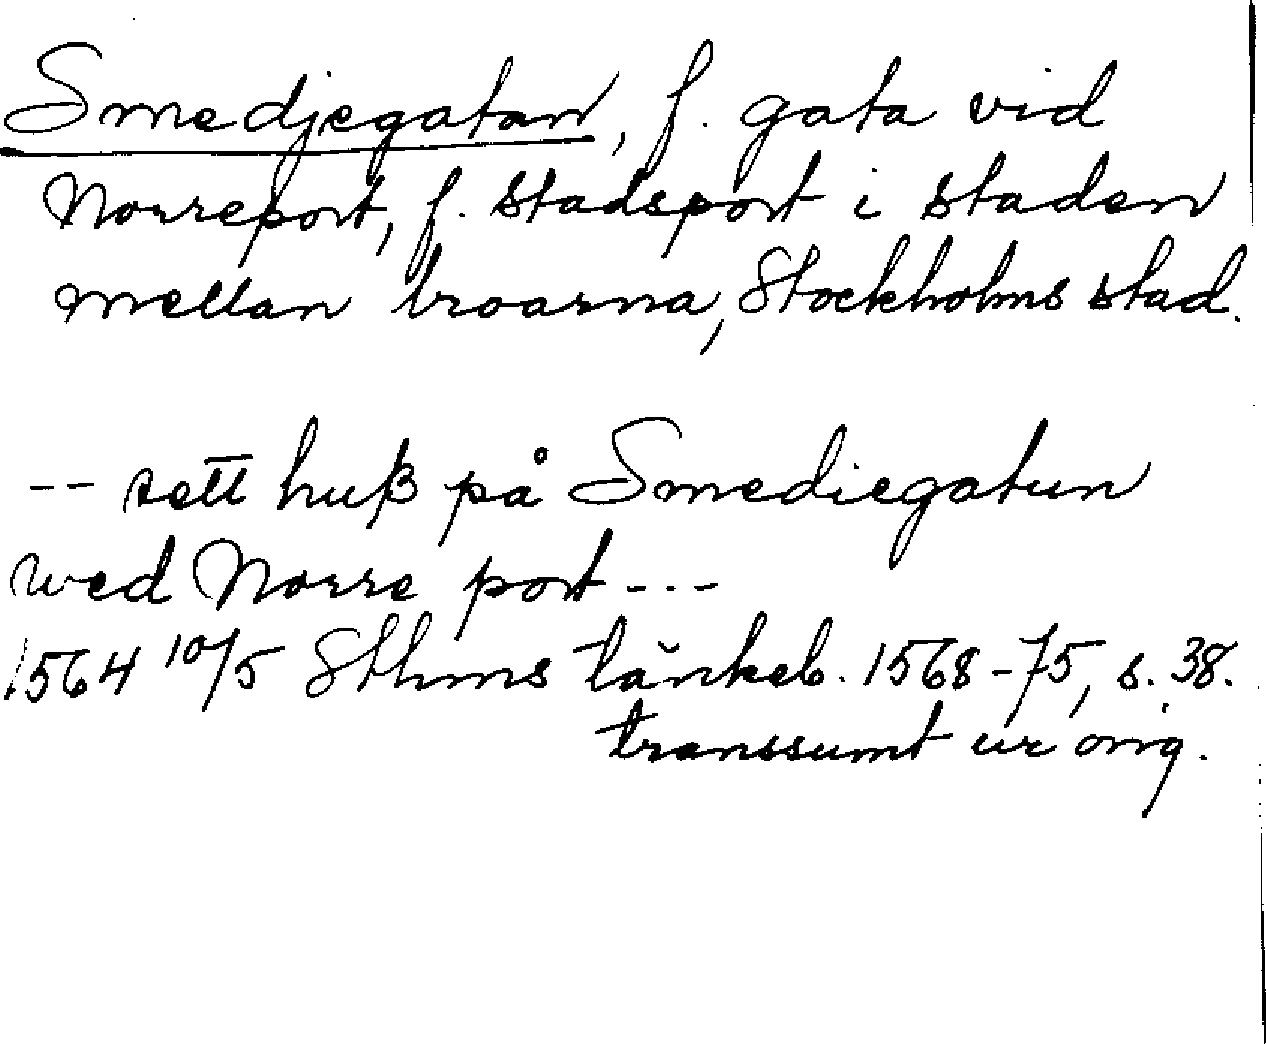 Smedjegatan, f. gata vid
Norreport, f. stadsport i staden
mellan broarna, Stockholms stad.
-- sett huß på Smediegatun
wed Norre port ---
1564 10/5 Sthms tänkeb. 1568-75, s. 38.
transsumt ur orig.